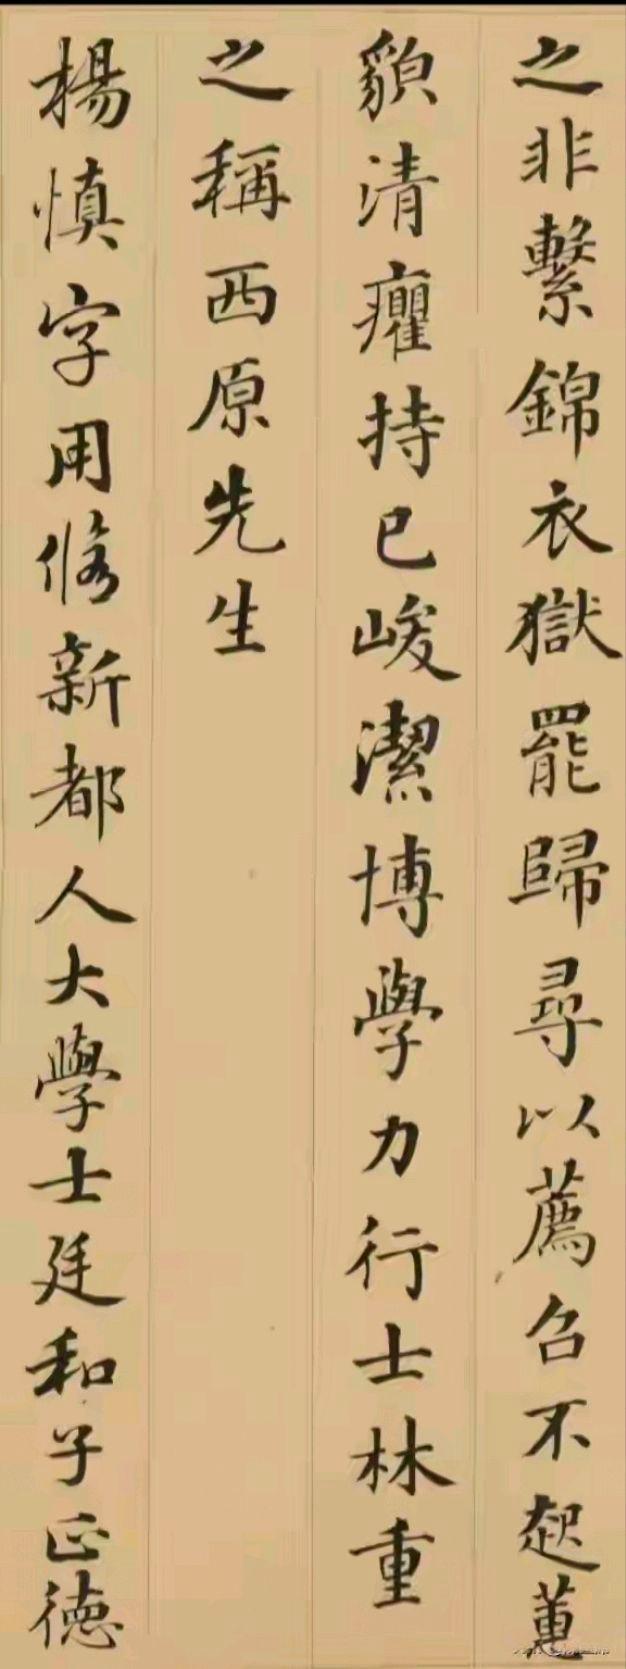 之非繫錦衣獄罷歸尋以薦召不起蕙
貌清癯持己峻潔博學力行士林重
之稱西原先生
楊慎字用修新都人大學士廷和子正德